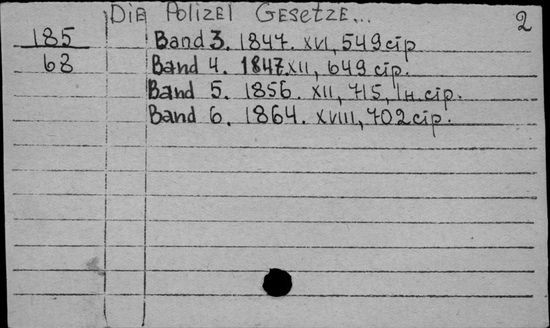 Die Polizei Gesetze...
2
185
68
Band 3. 1847. XVI, 549 cтp
Band 4. 1847. XII, 649 cтp.
Band 5. 1856. XII, 715, 1н. cтp.
Band 6. 1864. XVIII, 702 cтp.